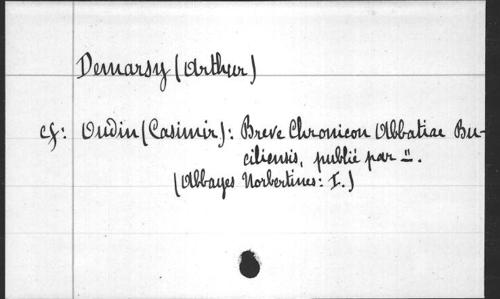 Demarsy (Arthur)
cf: Oudin (Casimir): Breve Chronicon Abbatiae Bu-
ciliensis, publié par =.
(Abbayes Norbertines: I.)